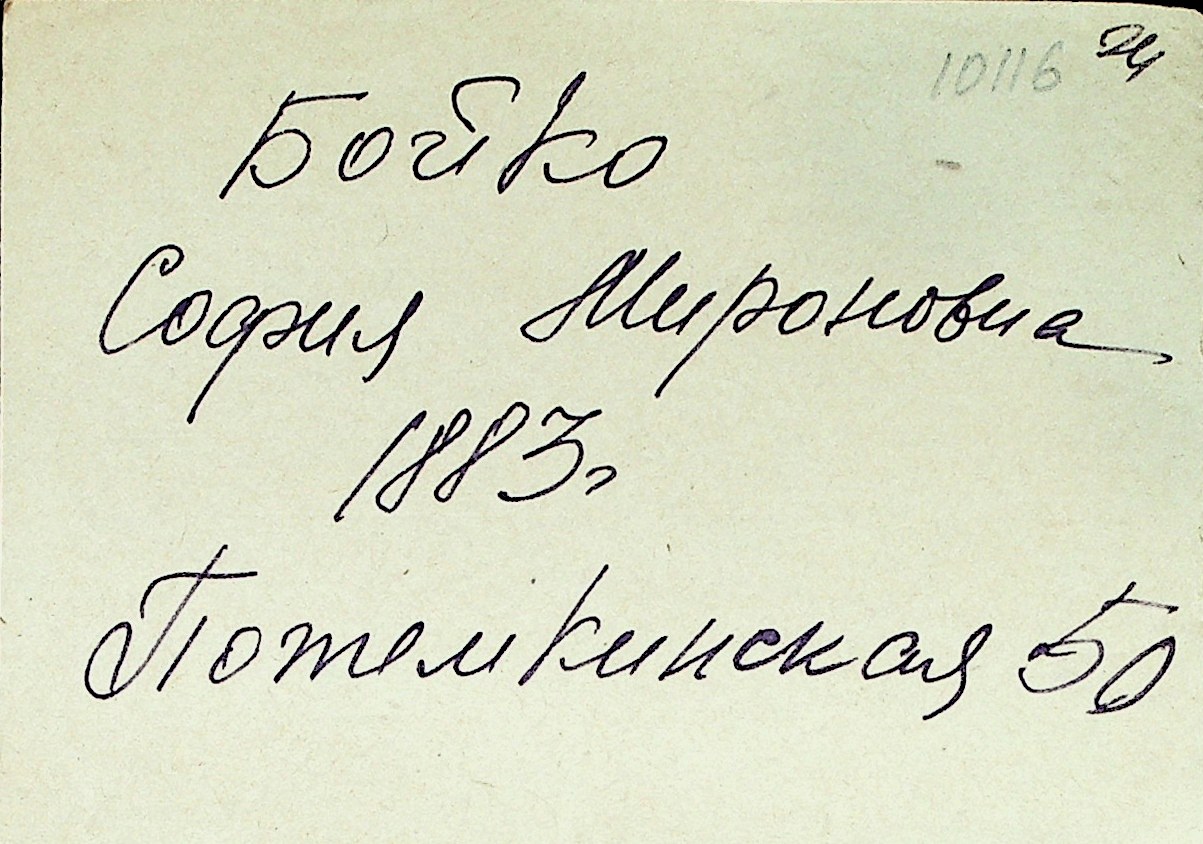 10116
Бойко
София Мироновна
1883г
Потемкинская 50